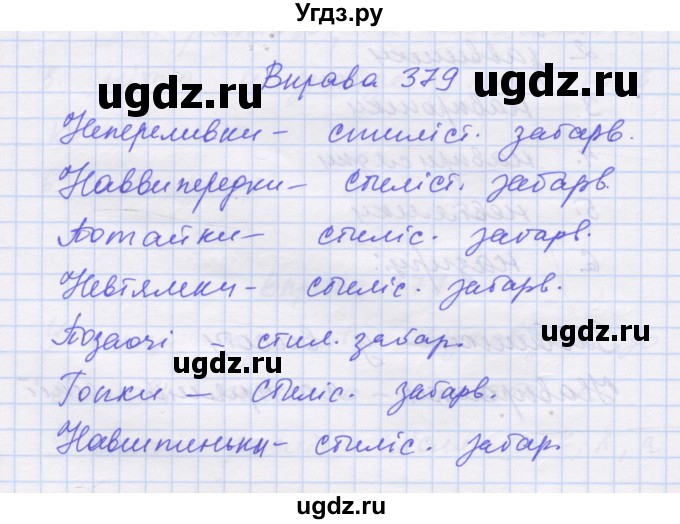 Угдз.ру
Вправа 379
ugdz.ru ugdz.ru
Непереливки – стиліст. забарв.
Наввипередки – стиліст. забарв.
ugdz.ru
Потайки – стиліс. забарв.
Невтямки – стиліс. забарв.
ugdz.ru
Позаочі – стил. забар.
ugdz.ru
Гопки – стиліс. забарв.
Навшпиньки – стиліс. забар.
ugdz.ru